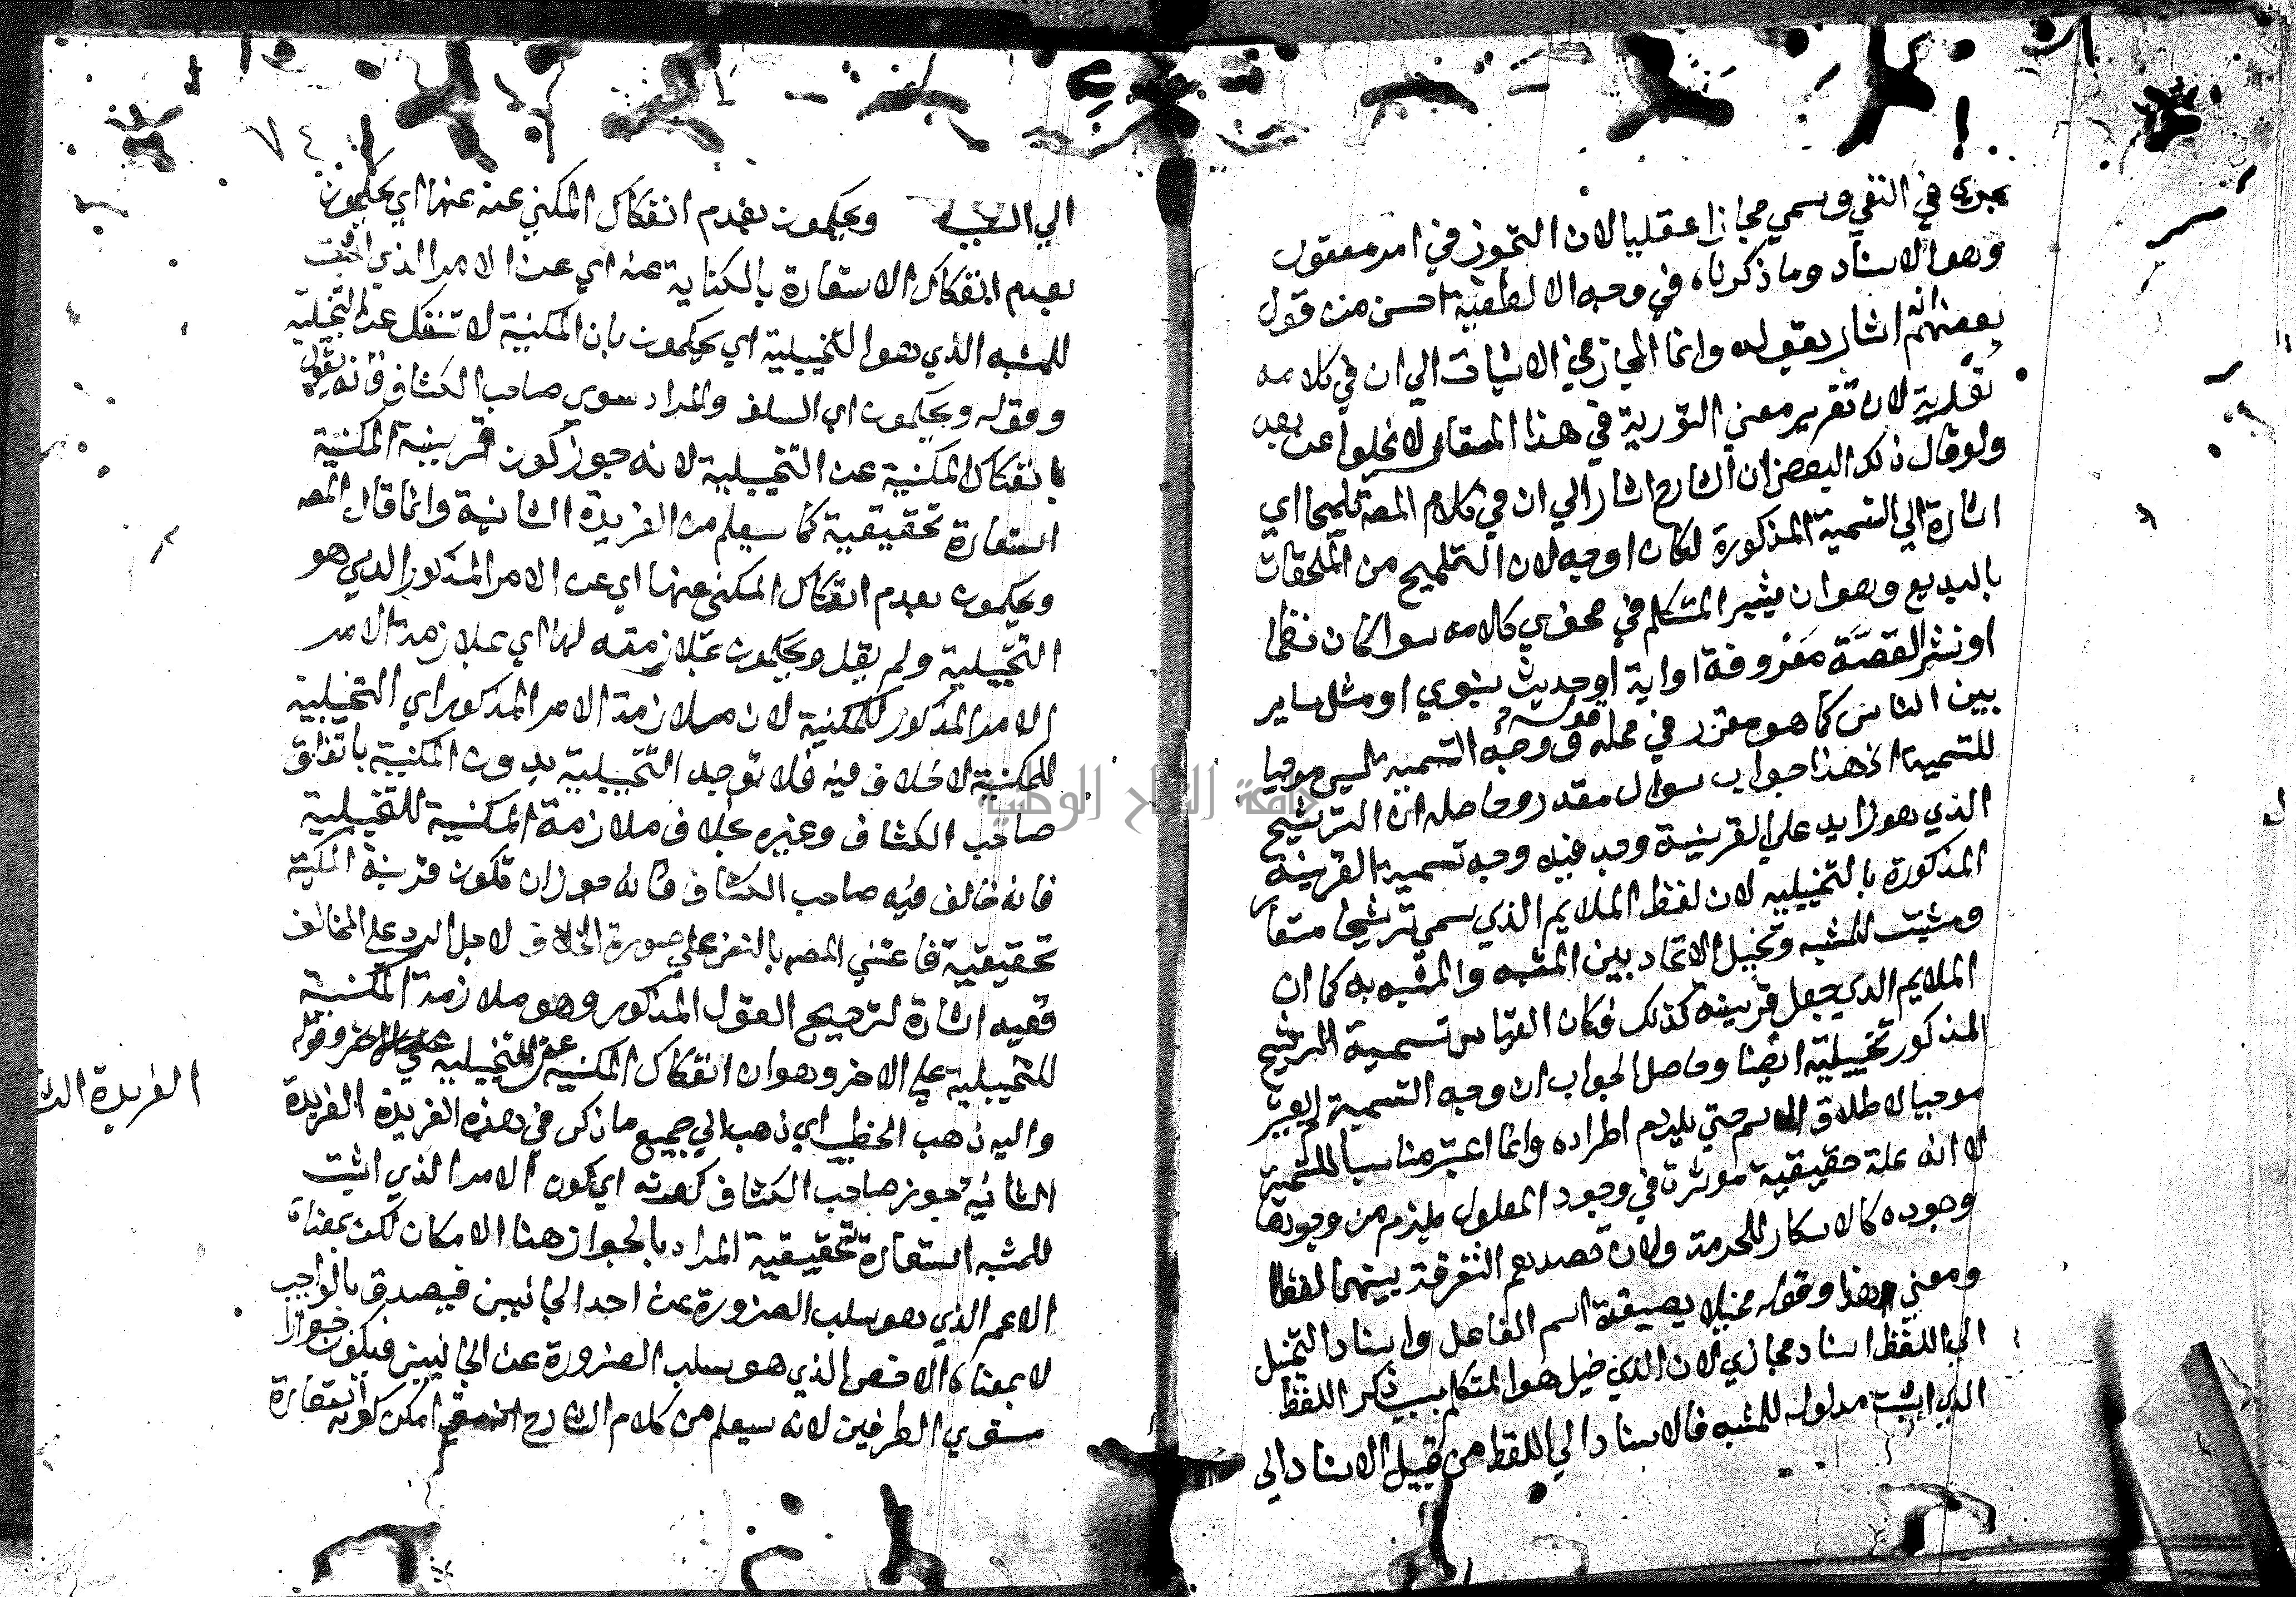 يجري في النفي ويسمي مجازا عقليا لان التجوز في امر معقول
وهو الاسناد وما ذكرناه في وجه الالطفية احسن من قول
بعضهم انه اشار بقوله وانما المجاز في الاثبات الي ان في كلامه
تورية لان تقرير معني التورية في هذا المقام لا يخلوا عن بعد
ولو قال ذلك البعض ان الشارح اشار الي ان في كلام المصـ تلميحا اي
اشارة الي التسمية المذكورة لكان اوجه لان التلميح من الملحقات
بالبديع وهو ان يشير المتكلم في فحوي كلامه سوا كان نظما
او نثرا لقصة معروفة او اية او حديث نبوي او مثل ساير
بين الناس كما هو مقرر في محله قوله ووجه التسمية ليس موجبا
للتسمية اذ هذا جواب سوال مقدر وحاصله ان الترشيح
الذي هو زايد علي القرينة وجد فيه وجه تسمية القرينة
المذكورة بالتخييلية لان لفظ الملايم الذي يسمي ترشيحا مستعار
ومثبت للمشبه وتخييل الاتحاد بين المشبه والمشبه به كما ان
الملايم الذي جعل قرينة كذلك فكان القياس تسمية الترشيح
المذكور تخييلية ايضا وحاصل الجواب ان وجه التسمية لم يعتبر
موجبا لاطلاق الاسم حتي يلزم اطراده وانما اعتبر مناسبا للتسمية
لا انه علة حقيقية موثرة في وجود المعلول يلزم من وجودها
وجوده كالاسكار للحرمة ولان قصدهم التفرقة بينهما لفظا
ومعني هذا وقوله مخيلا بصيغة اسم الفاعل واسناد التخييل
الي اللفظ اسناد مجازي لان الذي خيل هو المتكلم بسبب ذكر اللفظ
الذي اثبت مدلوله للمشبه فالاسناد الي اللفظ من قبيل الاسناد الي
٧٤
الي السبب ويحكمون بعدم انفكاك المكني عنه عنها اي يحكمون
بعدم انفكاك الاستعارة بالكناية عنه اي عن الامر الذي اثبت
للمشبه الذي هو التخييلية اي يحكمون بان المكنية لا تنفك عن التخييلية
وقوله ويحكمون اي السلف والمراد سوي صاحب الكشاف فانه يقول
بانفكاك المكنية عن التخييلية لانه جوز كون قرينة المكنية
استعارة تحقيقية كما سيعلم من الفريدة الثانية وانما قال المصـ
ويحكمون بعدم انفكاك المكني عنها اي عن الامر المذكور الذي هو
التخييلية ولم يقل ويحكمون بملازمته لها اي بملازمة الامر
الامر المذكور للمكنية لان ملازمة الامر المذكور اي التخييلية
للمكنية لا خلاف فيه فلا توجد التخييلية بدون المكنية باتفاق
صاحب الكشاف وغيره بخلاف ملازمة المكنية للتخييلية
فانه خالف فيه صاحب الكشاف فانه جوز ان تكون قرينة المكنية
تحقيقية فاعتني المصـ بالنص علي صورة الخلاف لاجل الرد علي المخالف
ففيه اشارة لترجيح القول المذكور وهو ملازمة المكنية
للتخييلية علي الاخر وهو ان انفكاك المكنية عن التخييلية وقوله
واليه ذهب الخطيب اي ذهب الي جميع ما ذكر في هذه الفريدة الفريدة
الثانية جوز صاحب الكشاف كونه اي كون الامر الذي اثبت
للمشبه استعارة تحقيقية المراد بالجواز هنا الامكان لكن بمعناه
الاعم الذي هو سلب الضرورة عن احد الجانبين فيصدق بالواجب
لا بمعناه الاخص الذي هو سلب الضرورة عن الجانبين فيكون جوازا
مستوي الطرفين لانه سيعلم من كلام الشارح امكن كونه استعارة
الفريدة
جامعة النجاح الوطنية